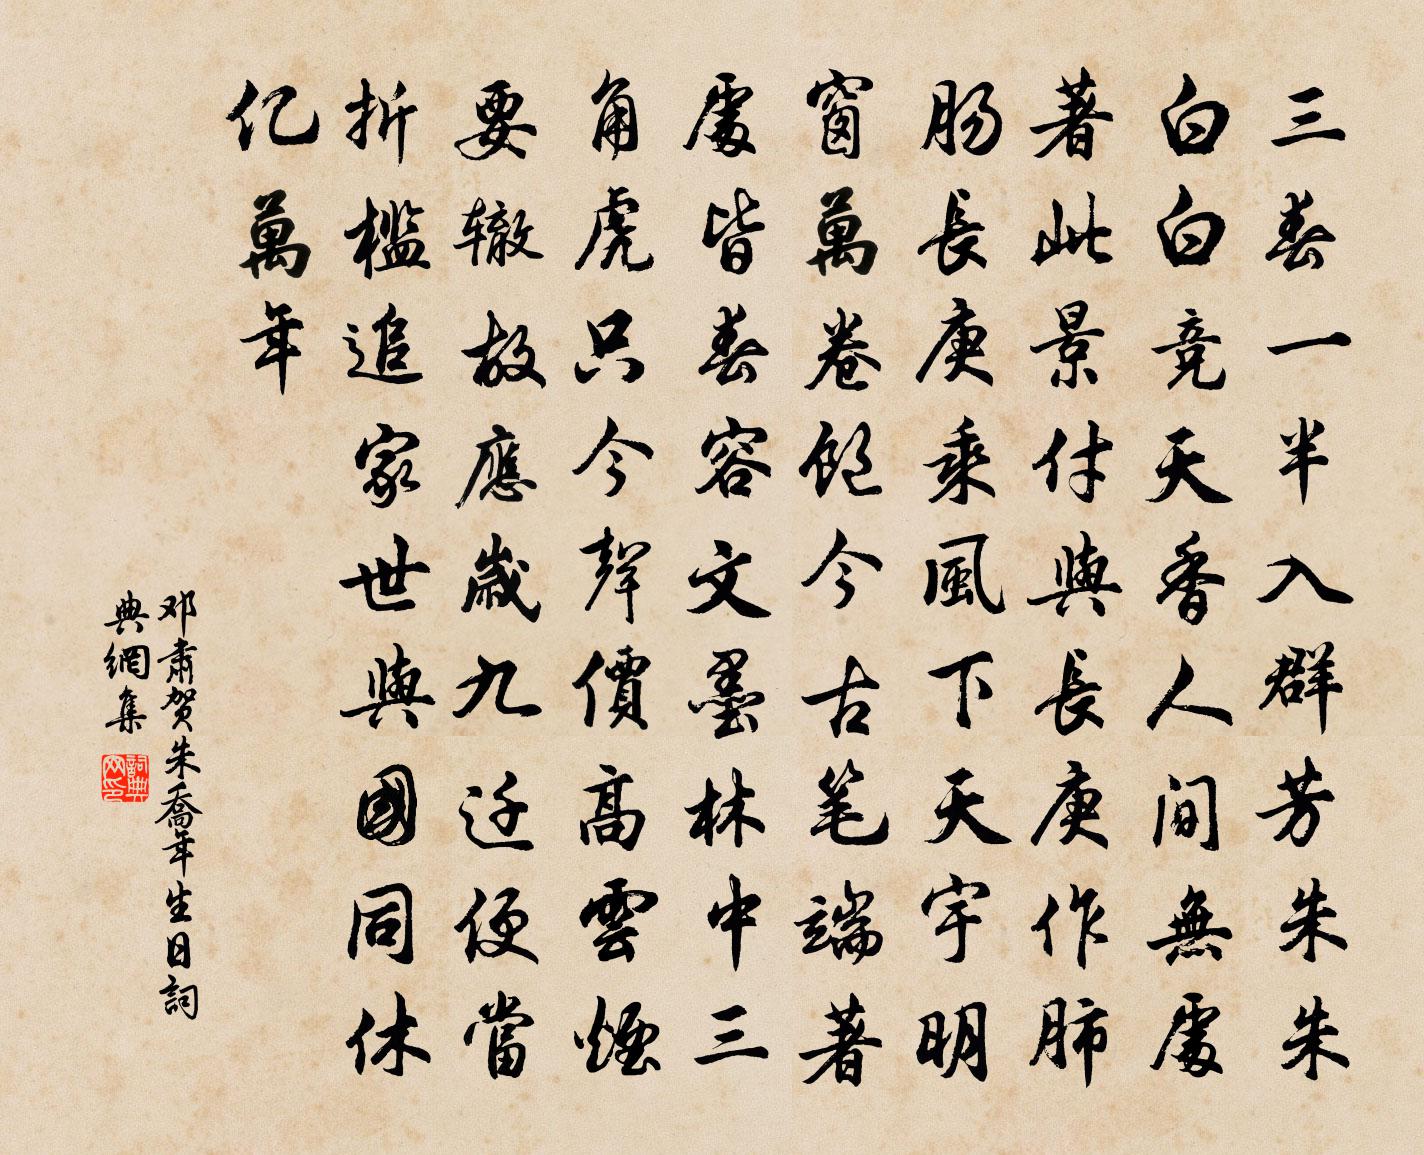 三春一半入群芳朱朱
白白竞天香人间無處
著此景付與長庚作肺
肠長庚乘風下天宇明
窗萬卷饱今古笔端著
處皆春容文墨林中三
角虎只今聲價高雲煙
要辙故應歲九迁便當
折檻追家世與國同休
亿萬年
邓肃贺朱喬年生日詞
典網集
詞典
网印